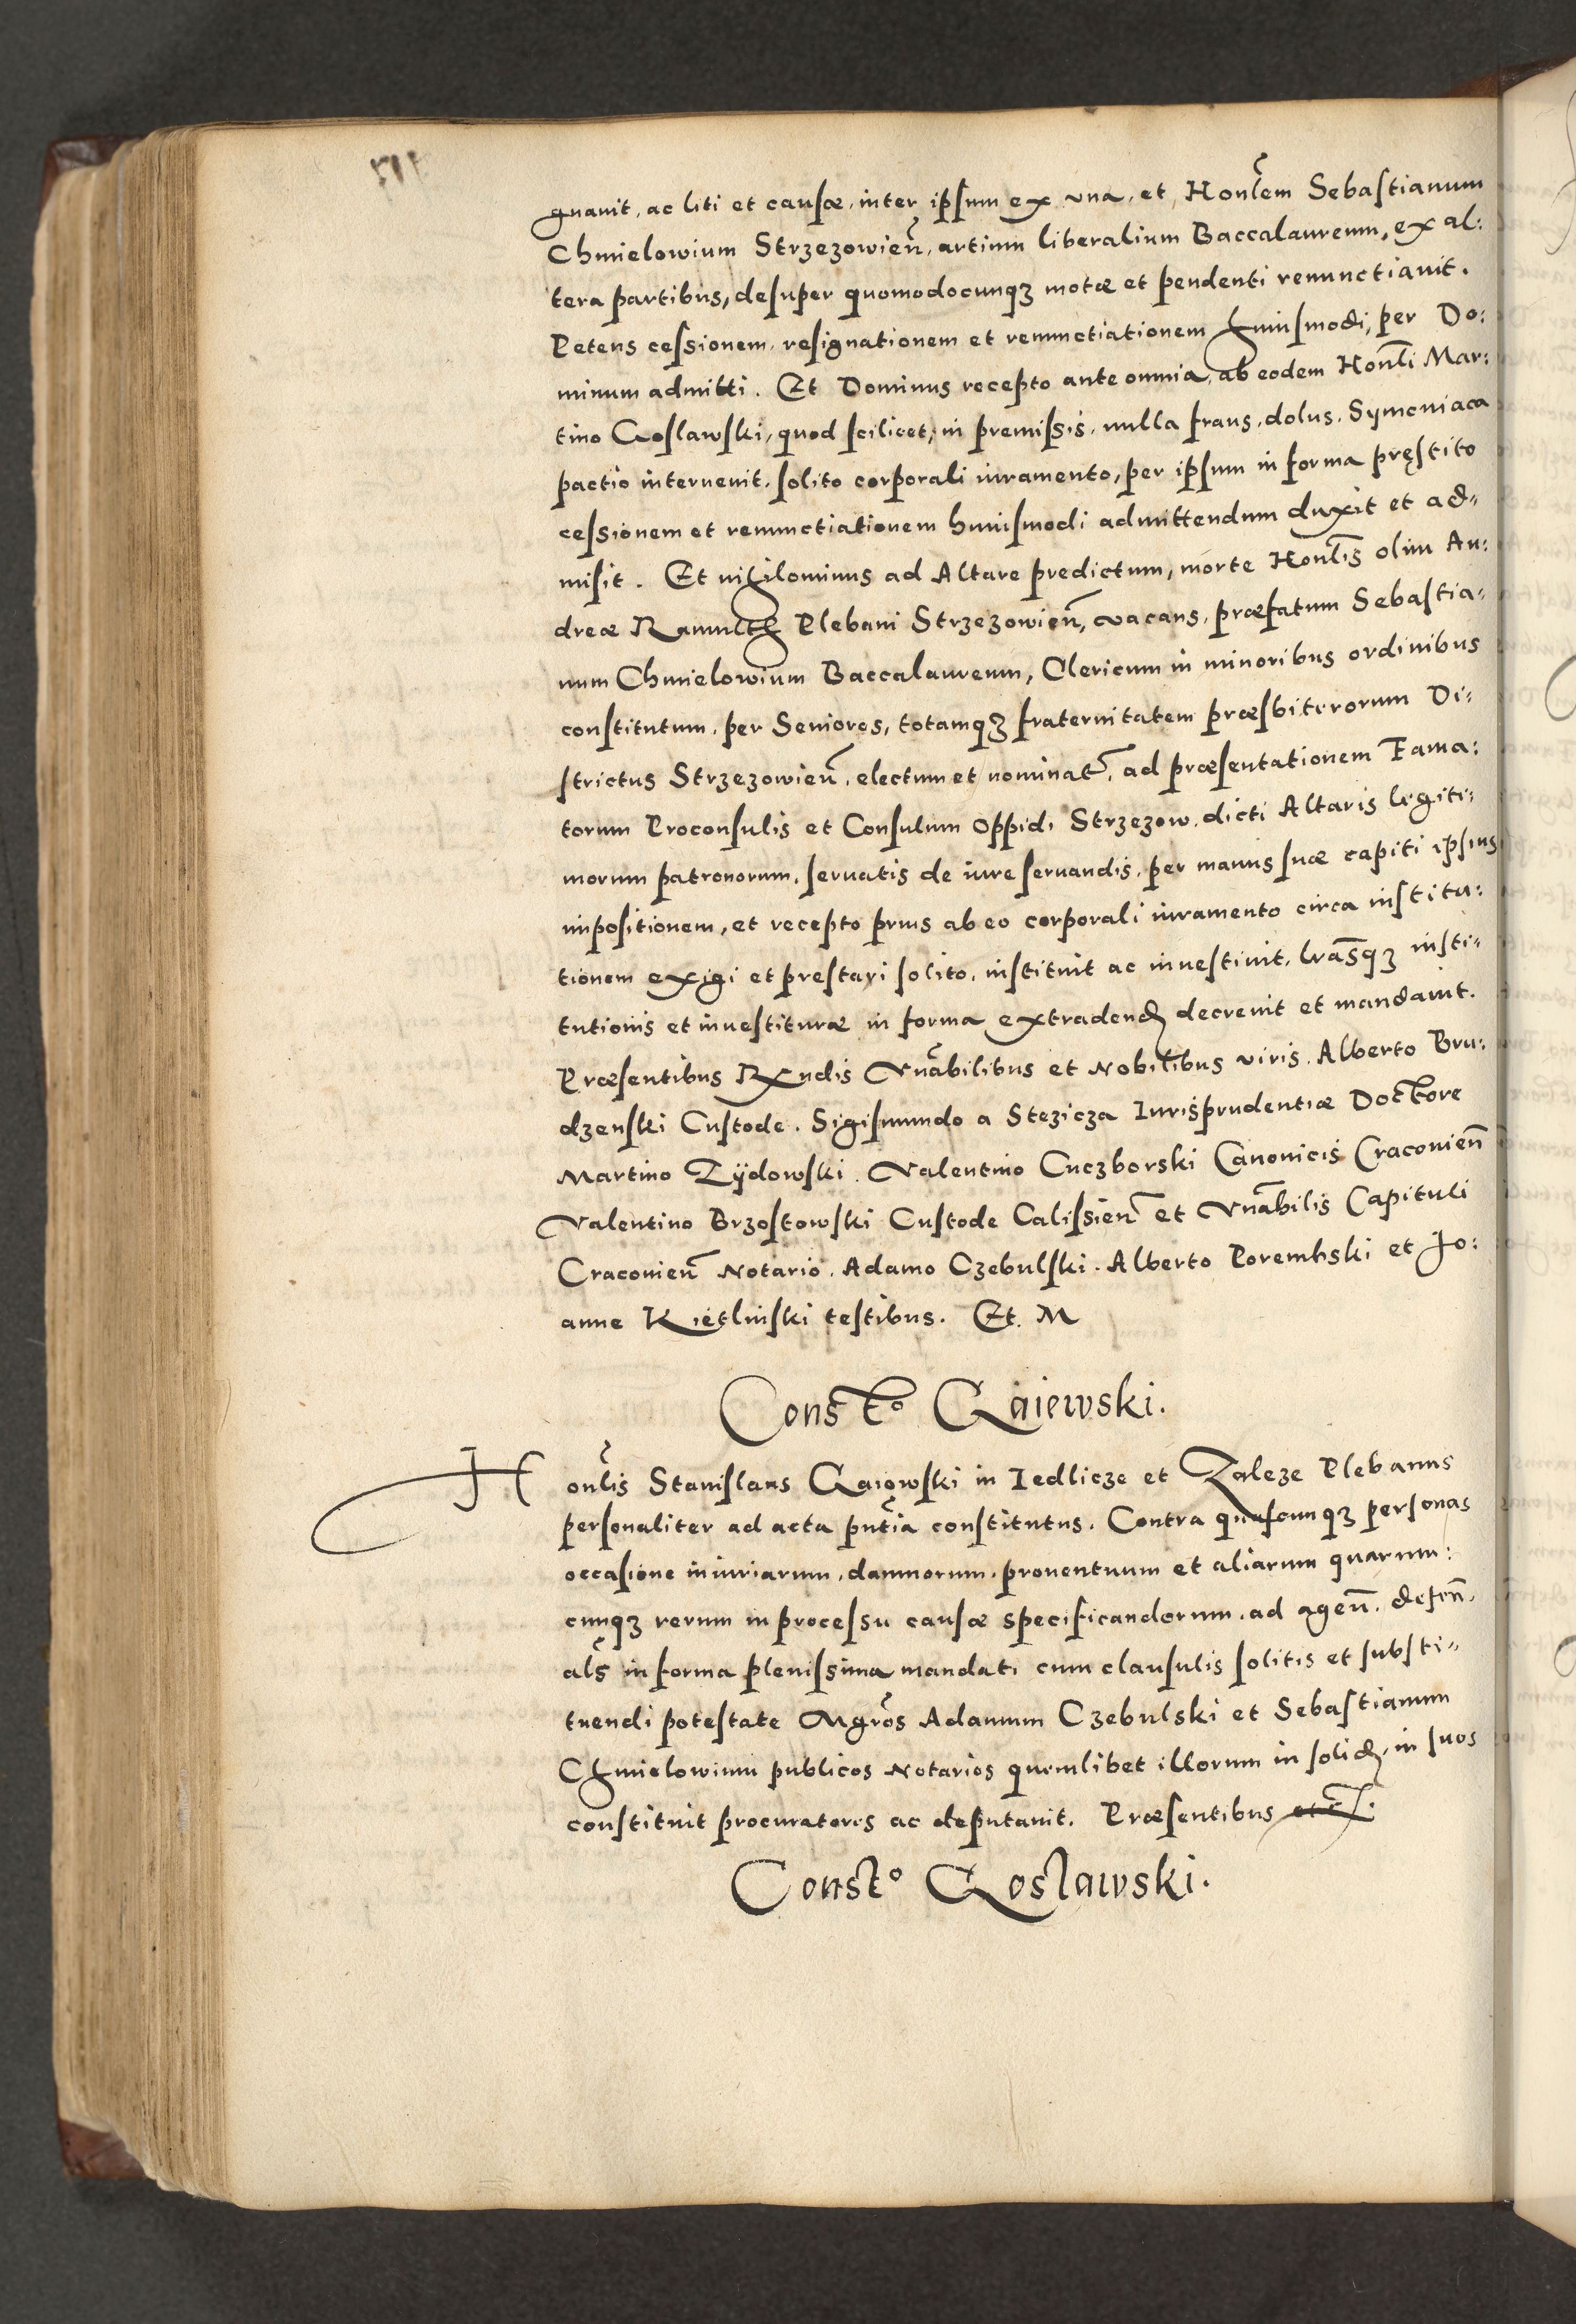 gnauit, ac liti et causæ, inter ipsum ex vna, et Honlem Sebastianum
Chmielowium Strzezowieñ, artium liberalium Baccalaureum, ex al:
tera partibus, desuper quomodocunqꝫ motæ et pendenti renunctiauit.
Petens cessionem, resignationem et renunctiationem huiusmodi, per Do:
minum admitti. Et Dominus recepto ante omnia, ab eodem Honli Mar:
tino Goslawski, quod scilicet, in premissis, nulla fraus, dolus, Symoniaca
pactio interuenit, solito corporali iuramento, per ipsum in forma pręstito
cessionem et renunctiationem huiusmodi admittendum duxit et ad=
misit. Et nihilominus ad Altare predictum, morte Honlis olim An:
dreæ Plebani Strzezowieñ, vacans, præfatum Sebastia=
num Chmielowium Baccalaureum, Clericum in minoribus ordinibus
constitutum, per Seniores, totamqꝫ fraternitatem præsbiterorum Di=
strictus Strzezowieñ, electum et nominat, ad præsentationem Fama:
torum Proconsulis et Consulum Oppidi Strzezow, dicti Altaris legiti:
morum patronorum, seruatis de iure seruandis, per manus suæ capiti ipsius
impositionem, et recepto prius ab eo corporali iuramento circa institu:
tionem exigi et prestari solito, instituit ac inuestiuit, lrãsqꝫ insti=
tutionis et inuestituræ in forma extradend decreuit et mandauit.
Præsentibus Rndis Vnãbilibus et Nobilibus viris, Alberto Bru:
dzenski Custode. Sigismundo a Stezicza Iurisprudentiæ Doctore
Martino Zÿdowski. Valentino Cuczborski Canonicis Craconieñ
Valentino Brzostowski Custode Calissieñ et Vnãbilis Capituli
Craconieñ Notario. Adamo Czebulski. Alberto Porembski et Io:
anne Kietlinski testibus. Et. M
Constᵒ Gaiewski.
Honlis Stanislaus Gaiowski in Iedlicze et Zaleze Plebanus
personaliter ad acta pñtia constitutus. Contra quascunqꝫ personas
occasione iniuriarum, damnorum, prouentuum et aliarum quarum:
cunqꝫ rerum in processu causæ specificandorum, ad ageñ, defeñ,
als in forma plenissima mandati cum clausulis solitis et substi=
tuendi potestate Mgros Adamum Czebulski et Sebastianum
Chmielowium publicos Notarios quemlibet illorum in solid, in suos
constituit procuratores ac deputauit. Præsentibus
Constᵒ Goslawski.